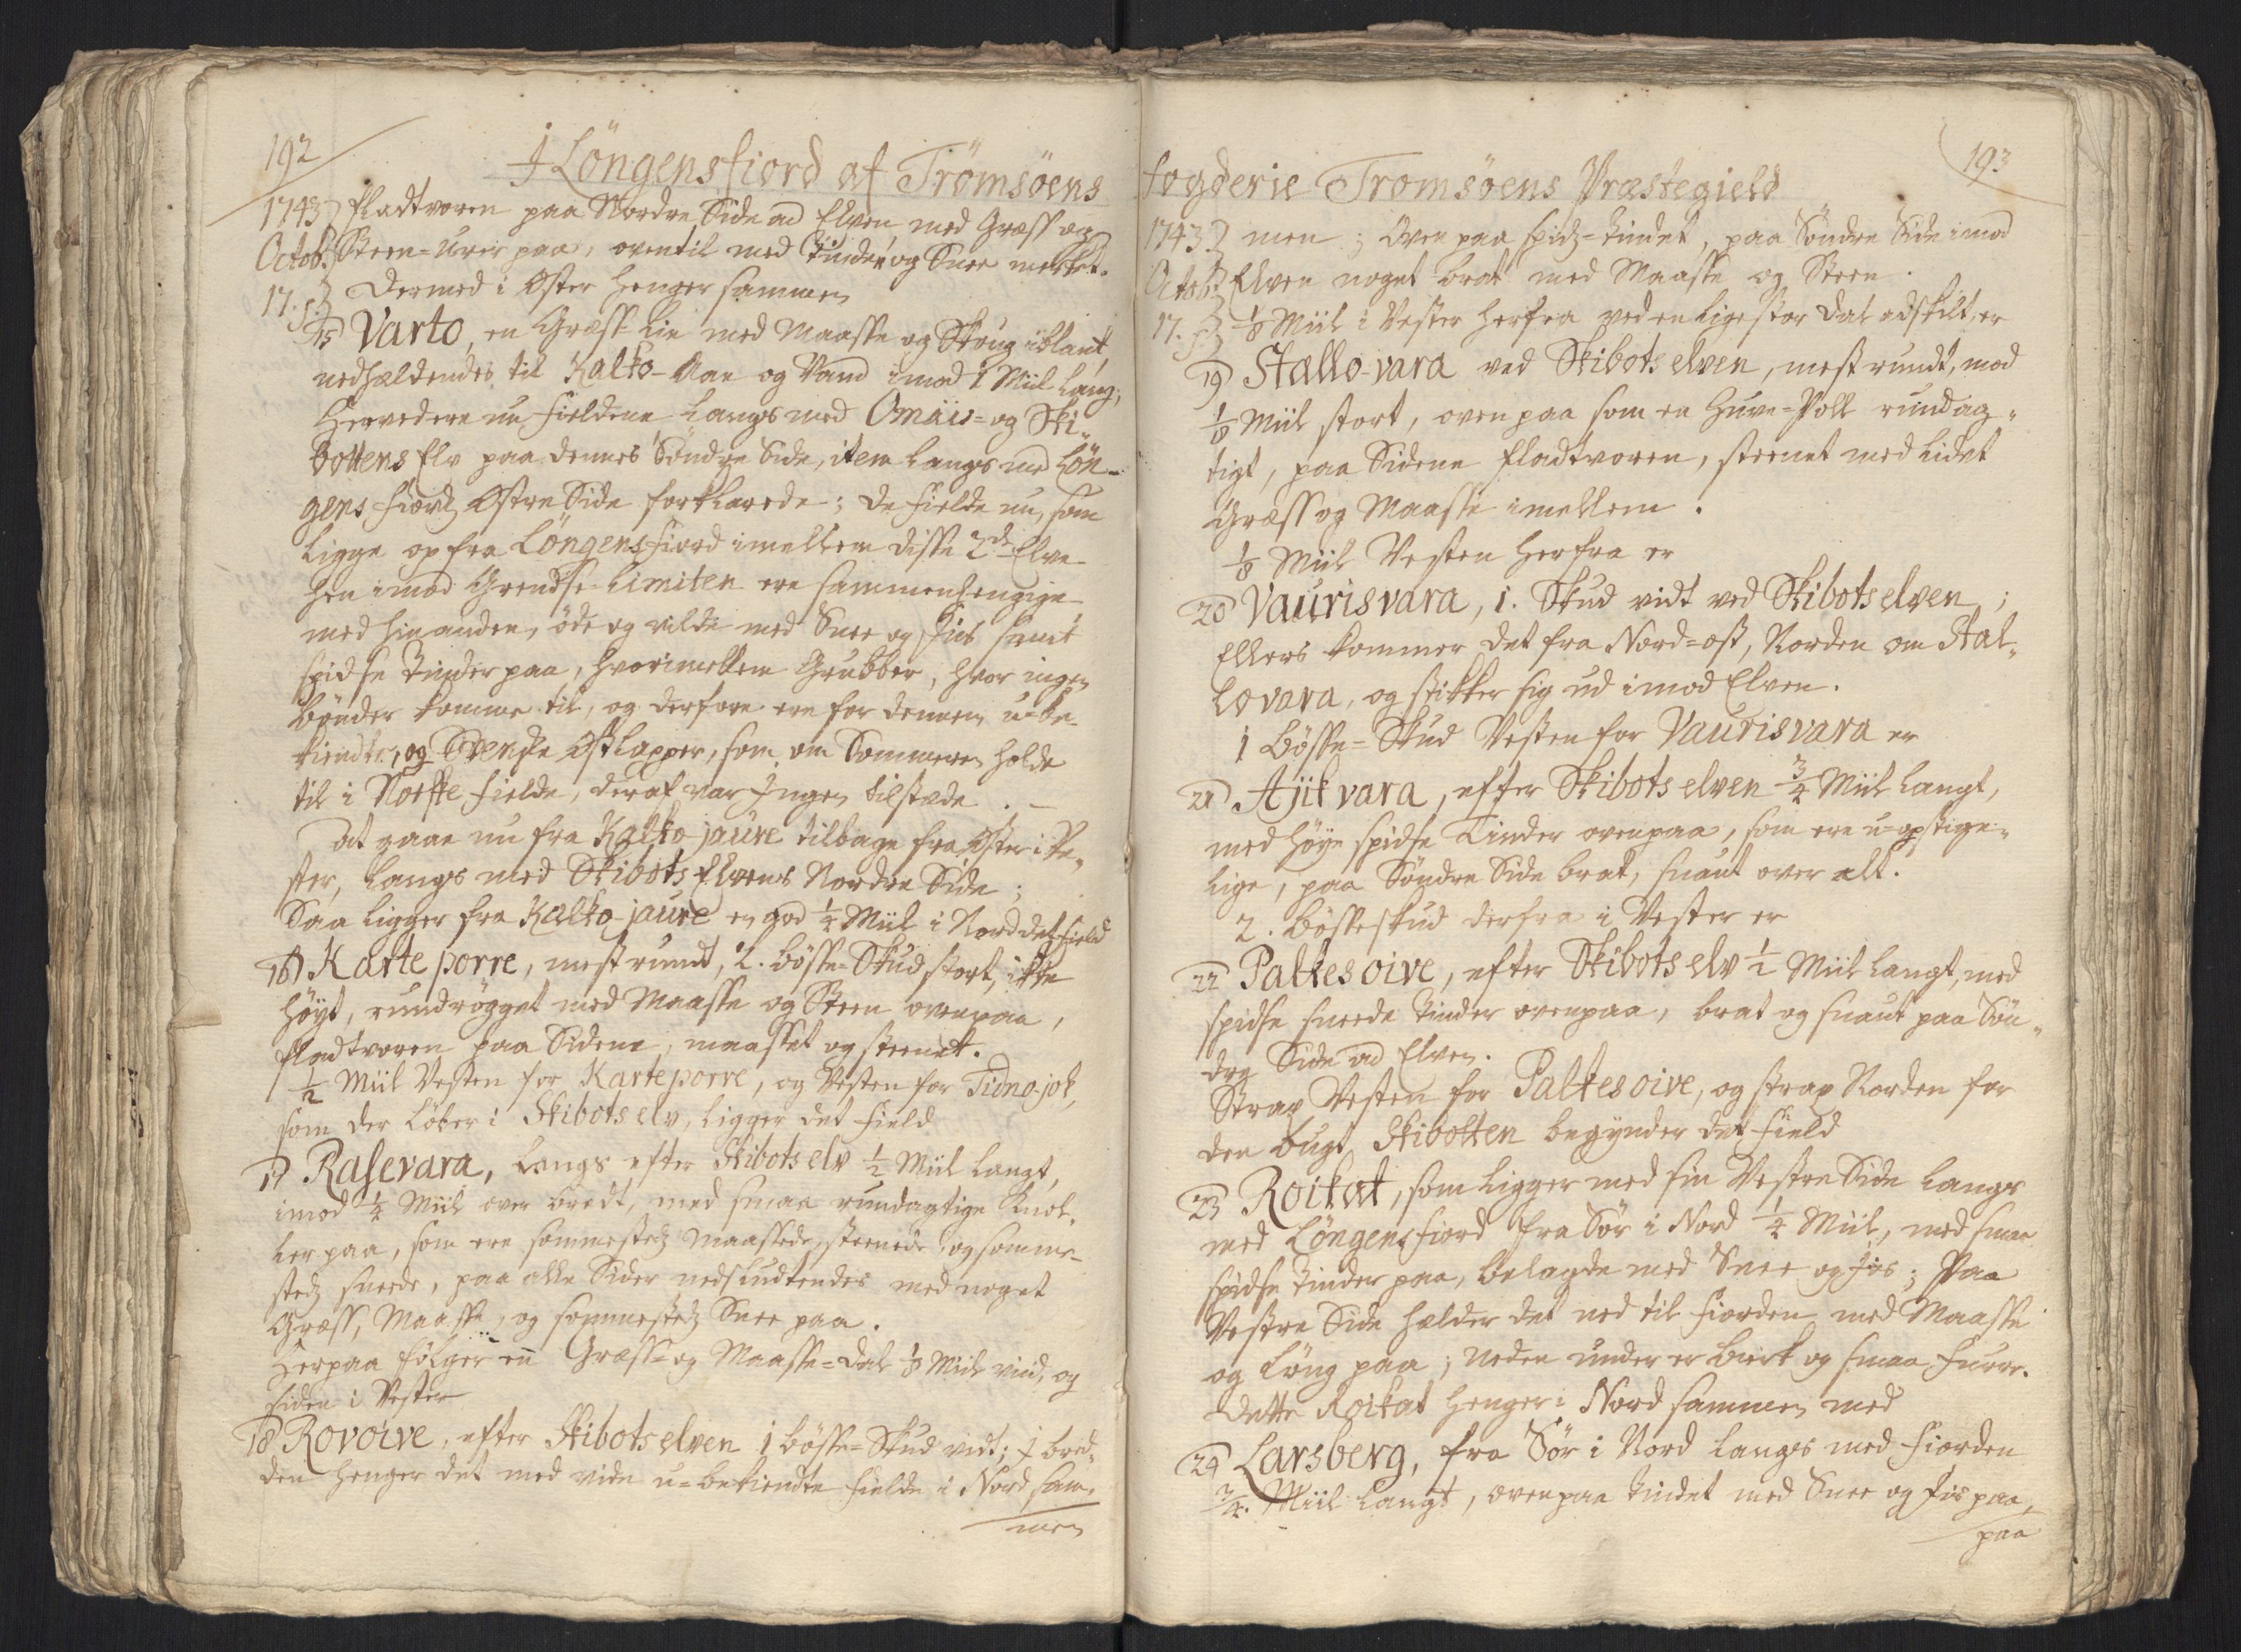 192
I Löngensfiord af Tromsöens
1743 fladtvoren paa Nordre Side ad Elven med Græss og
Octobr. Steen-Urer paa, oventil med Tinder og Snee merket.
17. Dermed i Øster henger sammen
15) Varto, en Græss-Lie med Maasse og Skoug iblant,
nedhældendes til Kalko-Aae og Vand imod 1 Miil lang;
Herved ere nu Fieldene langs med Omäis- og Ski-
bottens Elv paa dennes Söndre Side, item langs med Lön-
gens Fiords Østre Side forklarede; De Fielde nu, som
ligge op fra Löngensfiord imellem disse 2de Elve
hen imod Grendse-Limiten ere sammenhengige
med hinanden, öde og vilde med Snee og Iis samt
spidse Tinder paa, hvorimellem Grubber, hvor ingen
Bönder komme til, og derfore ere for dennem u-be-
kiendte, og Svenske Østlapper, som om Sommeren holde
til i Norske Fielde, deraf var Ingen tilstæde. —
At gaae nu fra Kalko-jaure tilbage fra Øster i Ve-
ster, langs med Skibots Elvens Nordre Side;
Saa ligger fra Kalko-jaure en god 1/4 Miil i Nord det Field
16) Karte porre, mest rundt, 2. Bösse-Skud stort, ikke
höyt, rundrögget med Maasse og Steen ovenpaa,
fladtvoren paa Sidene, maasset og steenet.
1/2 Miil Vesten for Karteporre, og Vesten for Tidno-jok,
som der löber i Skibots elv, ligger det Field
17) Rasevara, langs efter Skibots elv 1/2 Miil langt,
imod 1/4 Miil over bredt, med smaa rundagtige Knol-
ler paa, som ere sommesteds maassede, steenede og somme-
steds sneede, paa alle Sider nedskudtendes med noget
Græss, Maasse, og sommesteds Snee paa.
Herpaa fölger en Græss- og Maasse-Dal 1/8 Miil viid, og
siden i Vester
18) Rovoive, efter Skibots elven 1 Bösse-Skud vidt; I bred-
den henger det med vide u-bekiendte Fielde i Nord sam-
men
193
fogderie Tromsöens Præstegield
1743 men; Oven paa spids-tindet, paa Söndre Side imod
Octobr. Elven noget brat med Maasse og Steen.
17. 1/8 Miil i Vester herfra ved en lige stor Dal adskilt, er
19) Stællo-vara ved Skibots elven, mest rundt, mod
1/8 Miil stort, oven paa som en Huve-Poll rundag-
tigt, paa Sidene fladtvoren, steenet med lidet
Græss og Maasse imellem.
1/8 Miil Vesten herfra er
20) Vaurisvara, 1. Skud vidt ved Skibots elven;
Ellers kommer det fra Nord-ost, Norden om Stal-
lovara, og stikker sig ud imod Elven.
1 Bösse-Skud Vesten for Vaurisvara er
21) Ajikvara, efter Skibots elven 3/4 Miil langt,
med höye spidse Tinder ovenpaa, som ere u-opstige-
lige, paa Söndre Side brat, snaut over alt.
2. Bösseskud derfra i Vester er
22) Palkesoive, efter Skibots elv 1/2 Miil langt, med
spidse sneede Tinder ovenpaa, brat og snaut paa Sön-
dre Side ad Elven.
Strax Vesten for Palkesoive, og strax Norden for
den bugt Skibotten begynder det Field
23) Roikat, som ligger med sin Vestre Side langs
med Löngensfiord fra Sör i Nord 1/4 Miil, med smaa
spidse Tinder paa, belagde med Snee og Iis; Paa
Vestre Side hælder det ned til Fiorden med Maasse
og Löng paa; Neden under er Birk og smaa Furre.
Dette Roikat henger i Nord sammen med
24) Larsberg, fra Sör i Nord langs med Fiorden
3/4. Miil langt, ovenpaa tindet med Snee og Iis paa,
paa